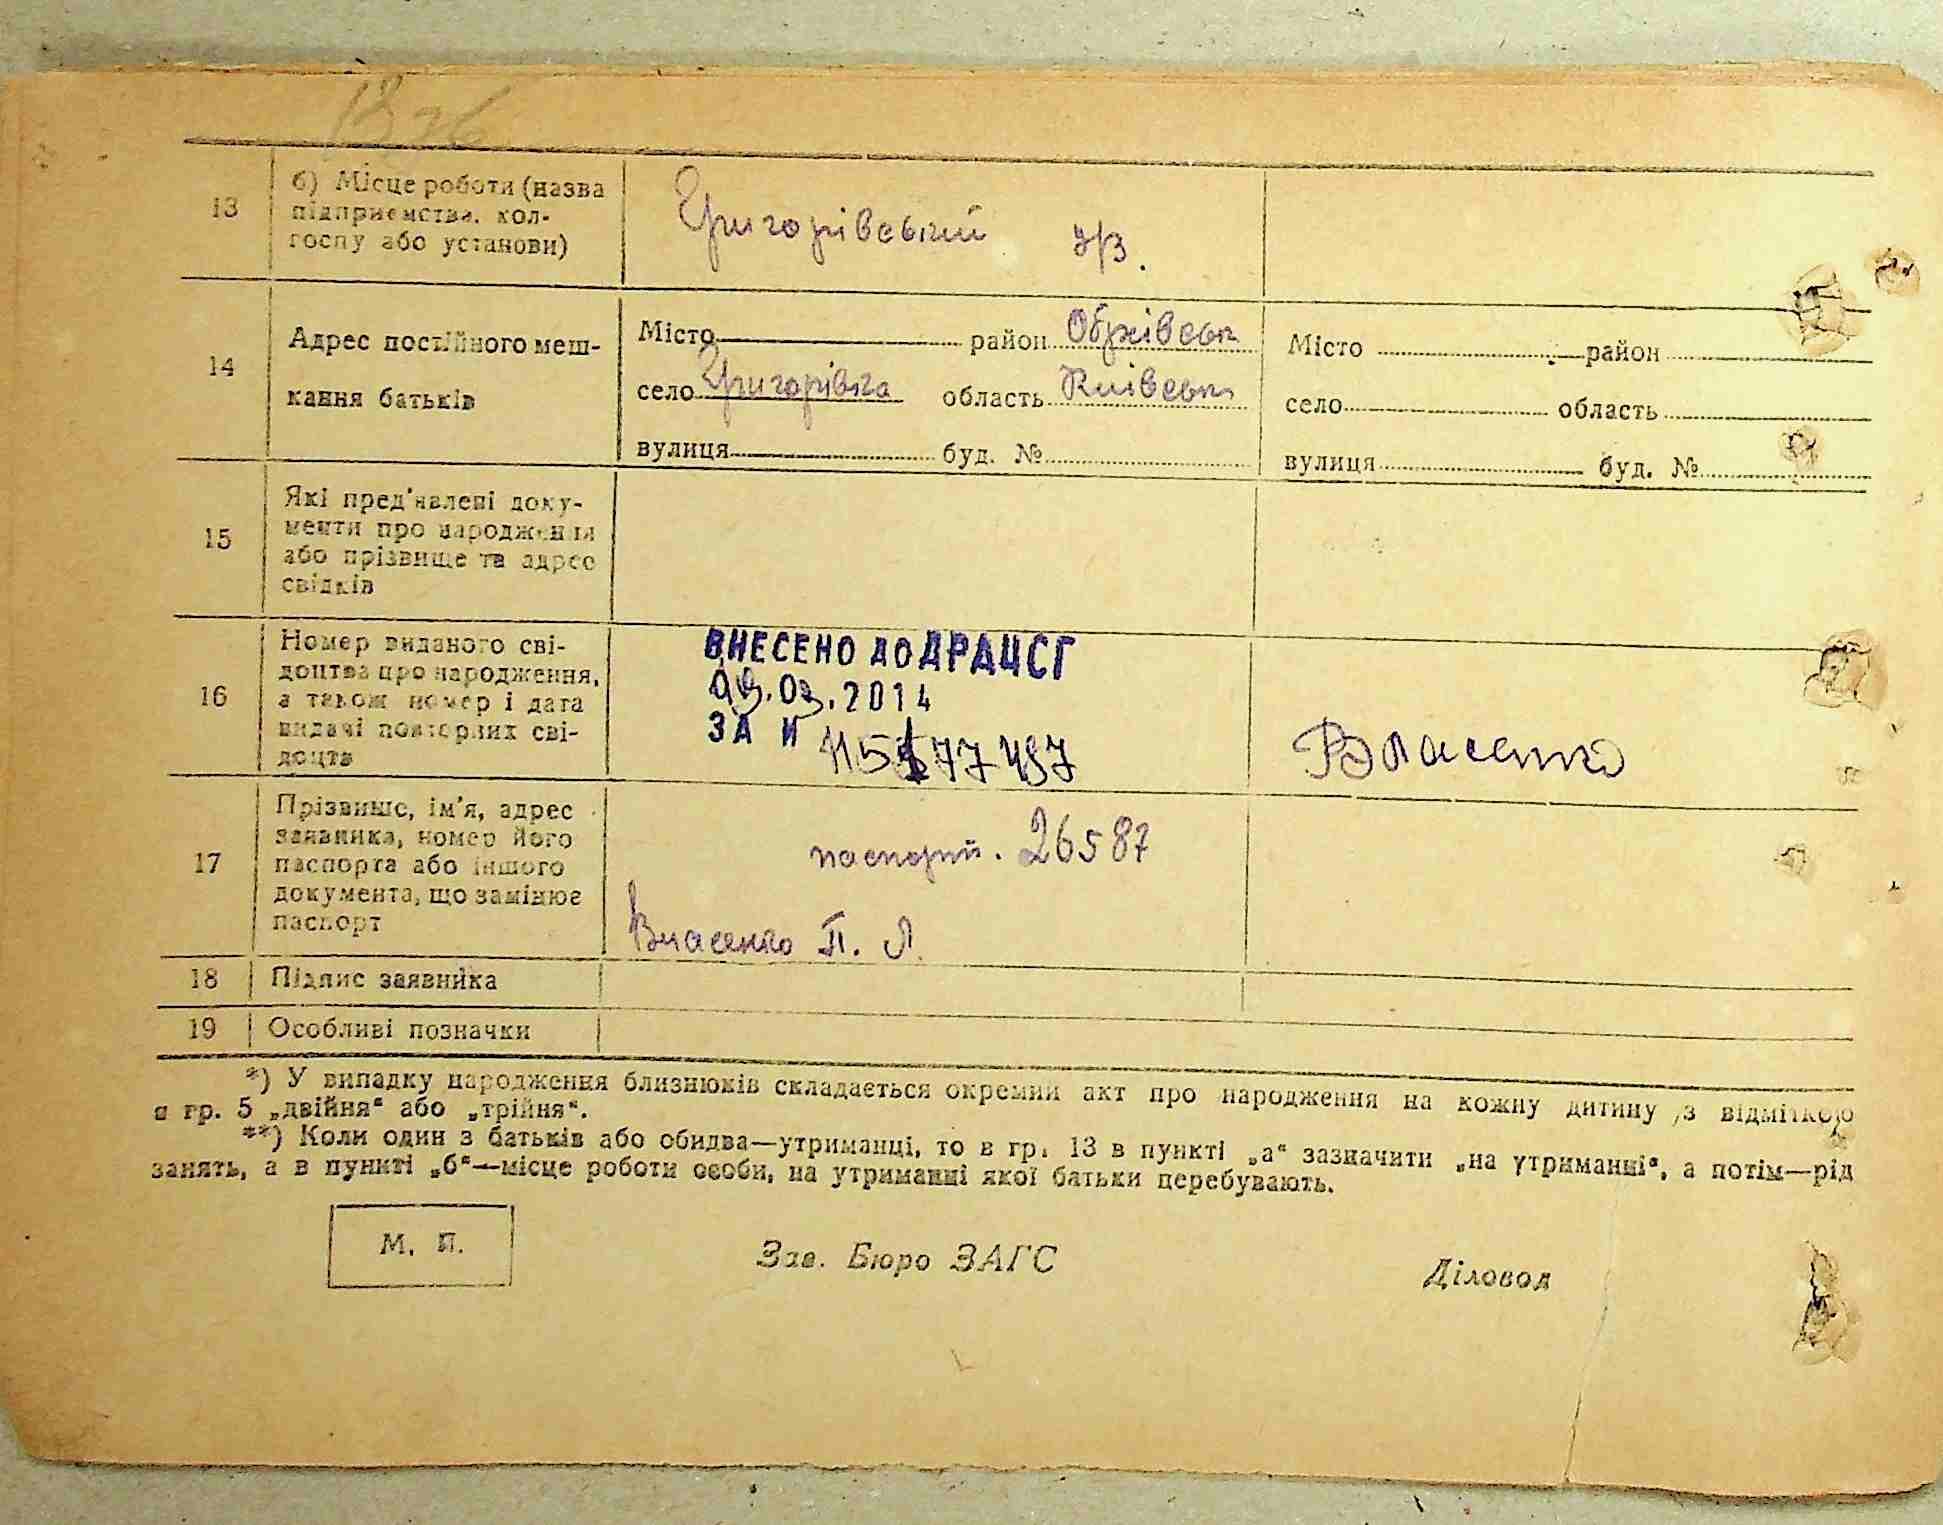 13
б) Місце роботи (назва
підприємства, кол-
госпу або установи)
Григорівський
14
Адрес постійного меш-
кання батьків
Місто район Обухівськ
село Григорівка область Київськ
вулиця буд. №
Місто район
село область
вулиця буд. №
15
Які пред'явлені доку-
менти про народження
або прізвище та адрес
свідків
16
Номер виданого сві-
доцтва про народження,
а також номер і дата
видачі повторних сві-
доцтв
ВНЕСЕНО ДО ДРАЦСГ
03.2014
ЗА И
Власенко
17
Прізвище, ім'я, адрес
заявника, номер його
паспорта або іншого
документа, що замінює
паспорт
паспорт. 26587
Власенко П. Л.
18 Підпис заявника
19 Особливі позначки
*) У випадку народження близнюків складається окремий акт про народження на кожну дитину з відміткою
в гр. 5 „двійня“ або „трійня“.
**) Коли один з батьків або обидва—утриманці, то в гр. 13 в пункті „а“ зазначити „на утриманні“, а потім—рід
занять, а в пункті „б“—місце роботи особи, на утриманні якої батьки перебувають.
М. П.
Зав. Бюро ЗАГС
Діловод